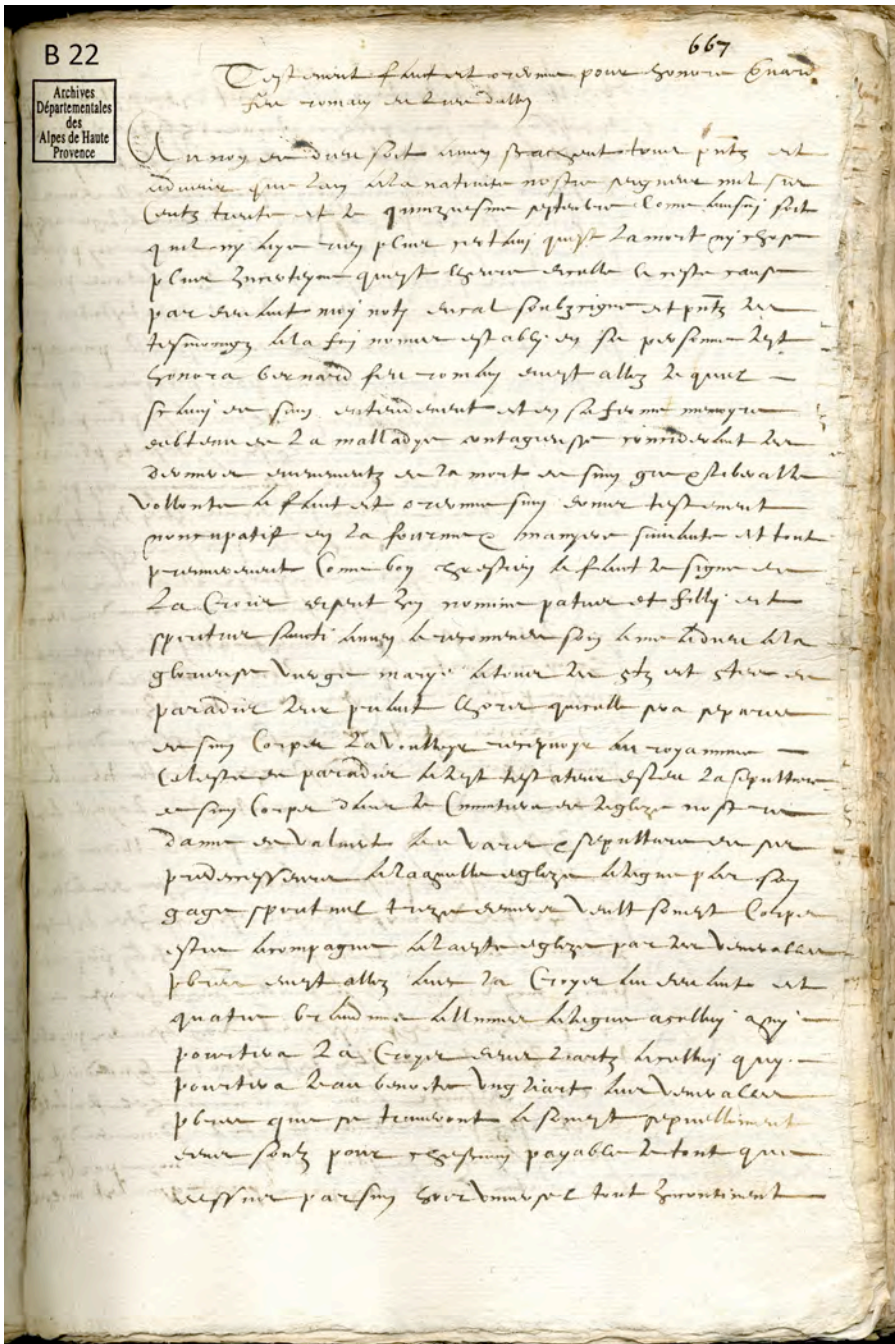 B 22
667
Archives
Départementales
des
Alpes de Haute
Provence
Testement faict et ordonne pour Honora Bnard
feu romain de
Au nom de dieu soit amen scachent tous pntz et
advenir que lan a la nativite nostre seigneur mil six
centz trente et le quinziesme septembre come ainsin soit
quil ny aye rien plus certain que la mort ny chose
plus incerteyne quest lheure dicelle a ceste cause
par devant moy notre ducal soubzsigne et pntz les
tesmoingz a la fin nomes estably en sa personne
honora bernard feu romain allez lequel
sain de son entendement et en sa ferme memoyre
de la malladye contagieusse considerant les
derniers evenementz de la mort de son gre et liberalle
vollonte a faict et ordonne son dernier testement
noncupatif en la forme et manyere suivante et tout
premierement come bon chrestien a faict le signe de
la Croix disent In nomine patris et filly et
spiritus sancti amen a recomende son ame a dieu a la
glorieuse vierge marye a tous les stz et stes de
paradis les priant lhore quicelle sera separee
de son Corps la voulloyr recepvoyr au royaumme
Celeste de paradis testateur esleu la sepulture
de son Corps dans le Cimentiere de leglize nostre
dame de valvert au vaze et sepulture de ses
predecesseurs a laquelle eglize a legue per son
gage spirituel treze deniers veult Corps
estre acompagne eglize par les venerables
pbres allez avec la Croyx au devant et
quatre brandons allumes a legue a celluy quy
pourtera la Croyx deux liartz a celluy quy
pourtera leau benoite ung liart aux venerables
pbres que se trouveront a sepvellimant
deux soulz pour chescung payable le tout que
dessus par son heoir universel tout incontinent